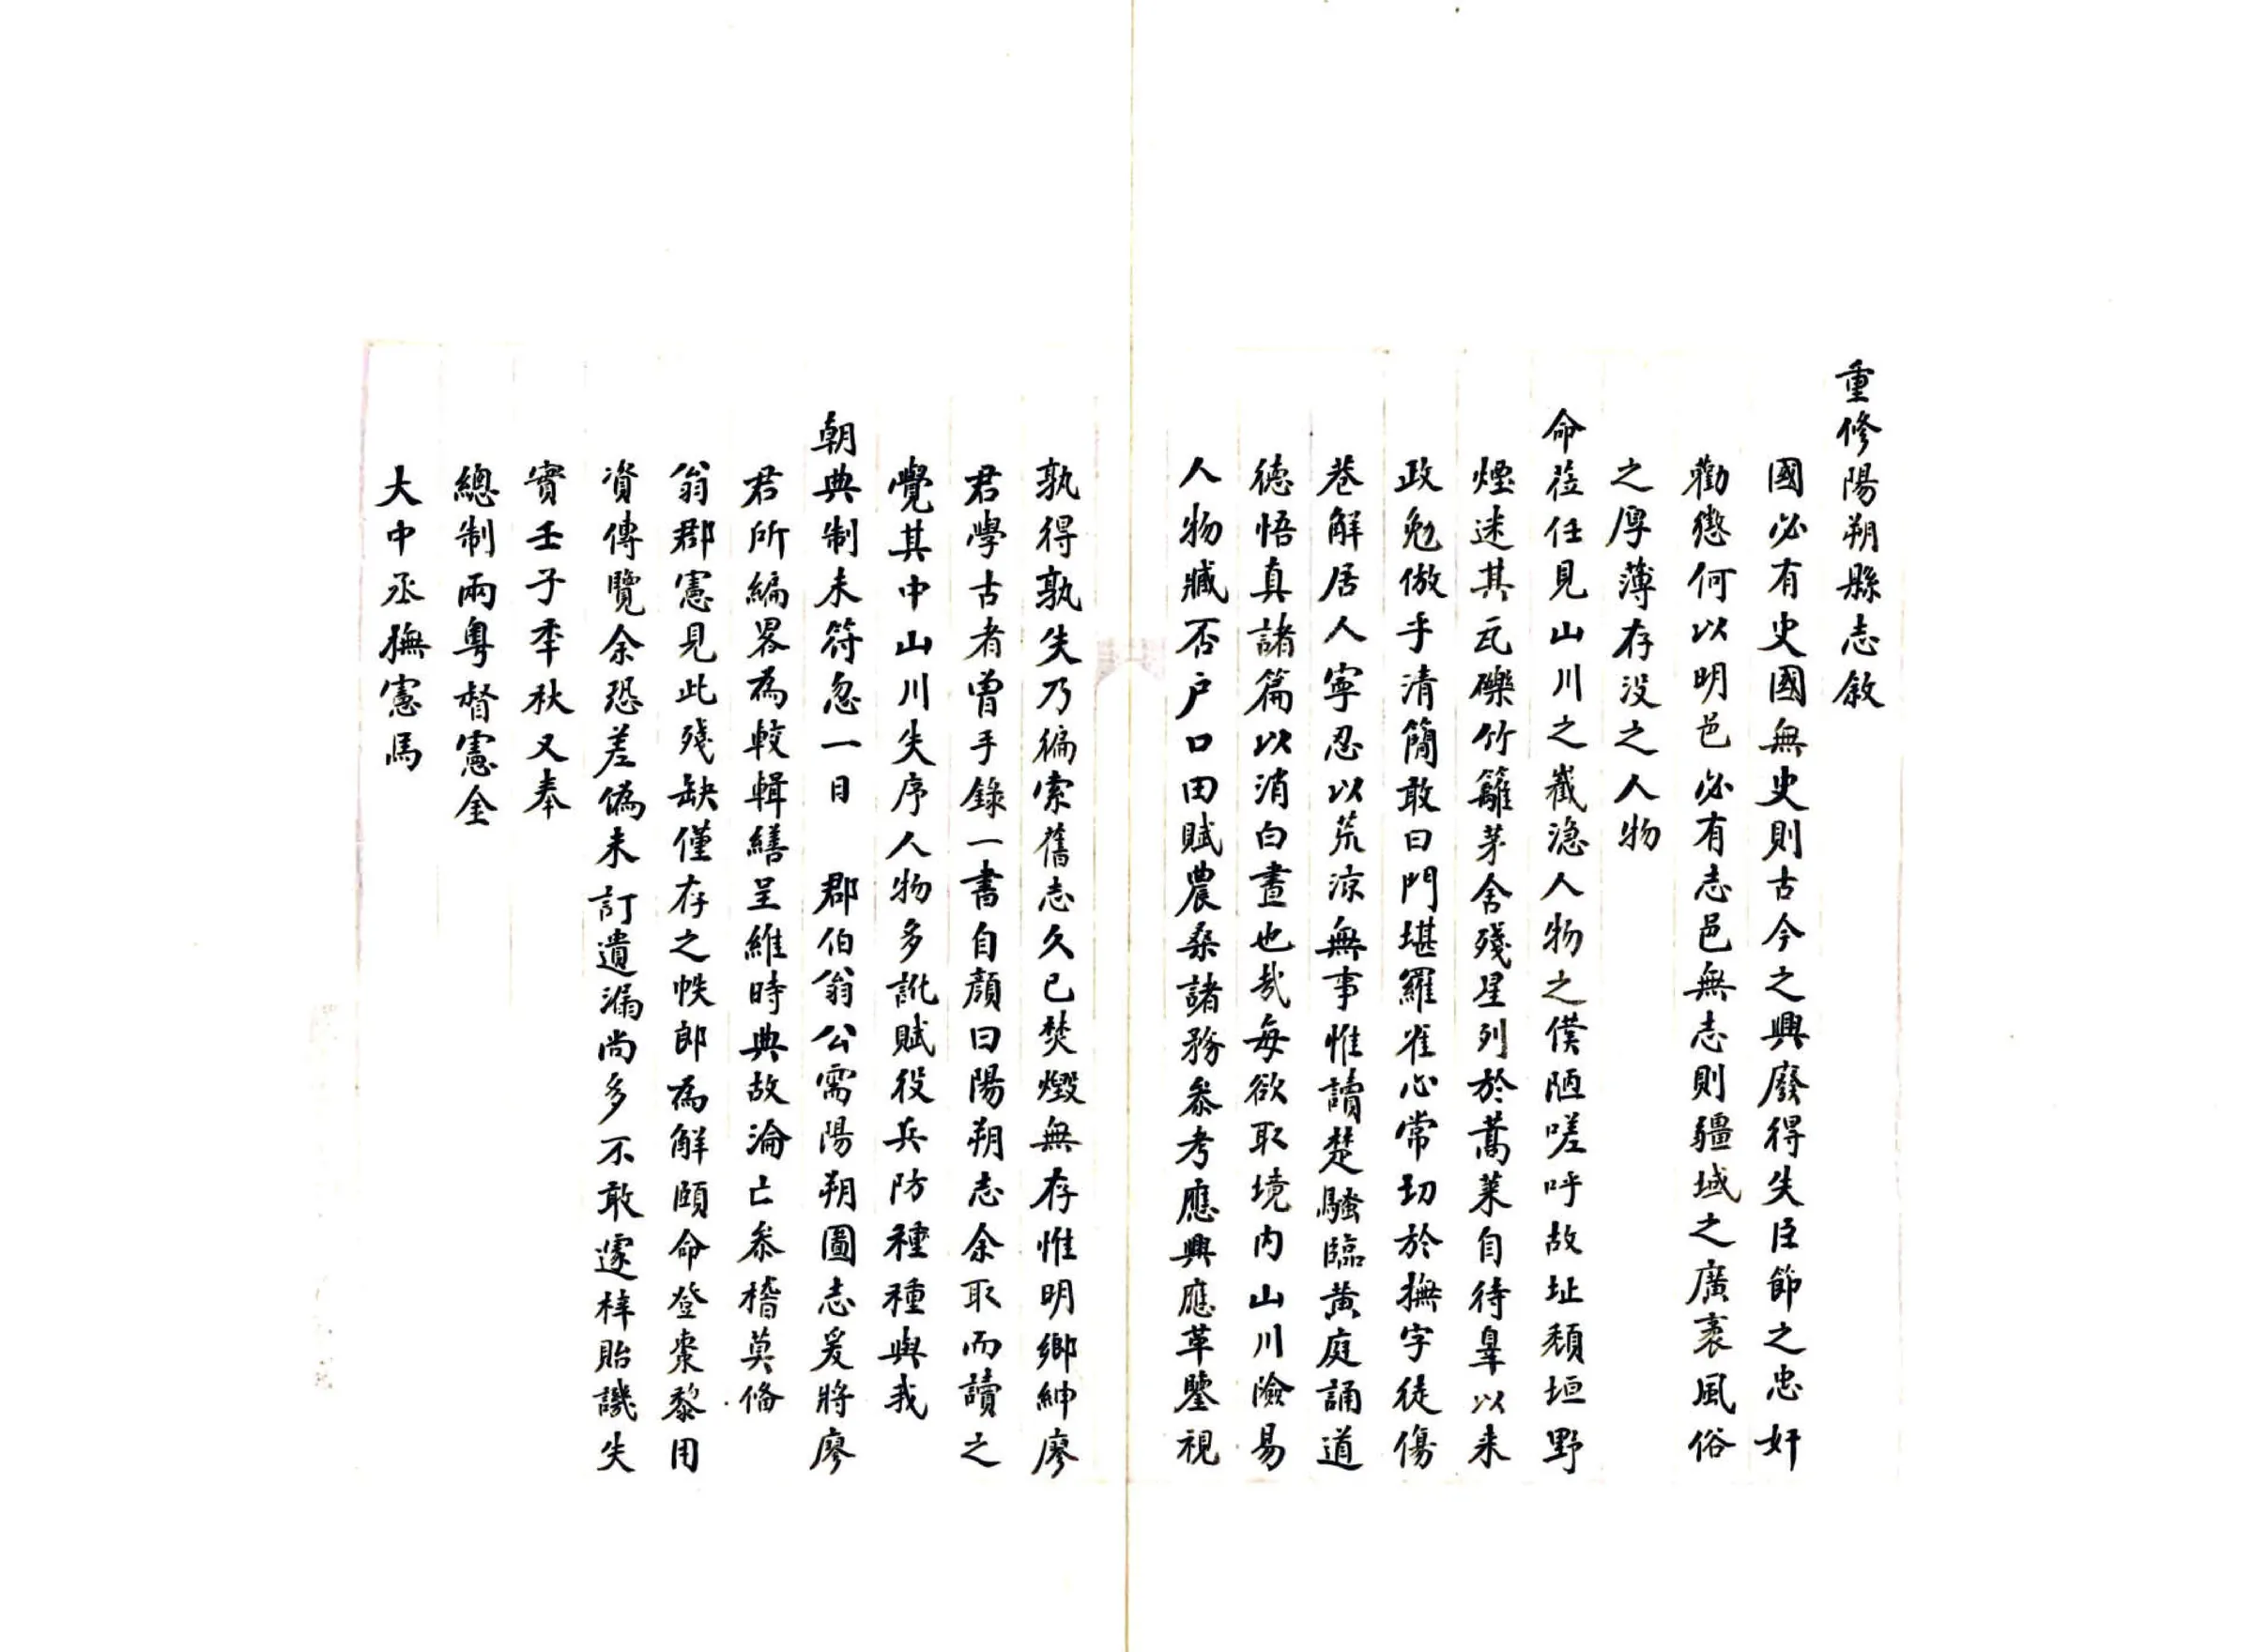 重修陽朔縣志敘
國必有史國無史則古今之興廢得失臣節之忠奸
勸懲何以明邑必有志邑無志則疆域之廣袤風俗
之厚薄存没之人物
命蒞任見山川之巀㵎人物之僕陋嗟呼故址頹垣野
煙迷其瓦礫竹籬茅舍殘星列於蒿萊自待辠以来
政勉倣乎清簡敢曰門堪羅雀心常切於撫字徒傷
巷解居人寧忍以荒涼無事惟讀楚騷臨黃庭誦道
德悟真諸篇以消白晝也哉每欲取境内山川險易
人物臧否户口田賦農桑諸務叅考應興應革鑒視
孰得孰失乃徧索舊志久已焚燬無存惟明鄉紳廖
君學古者曾手錄一書自顏曰陽朔志余取而讀之
覺其中山川失序人物多訛賦役兵防種種與我
朝典制未符忽一日 郡伯翁公需陽朔圖志爰將廖
君所編畧為較輯繕呈維時典故淪亡叅稽莫俻
翁郡憲見此殘缺僅存之帙郎為解頤命登棗黎用
資傳覽余恐差偽未訂遺漏尚多不敢遽梓貽譏失
實壬子季秋又奉
總制兩粤督憲金
大中丞撫憲馬